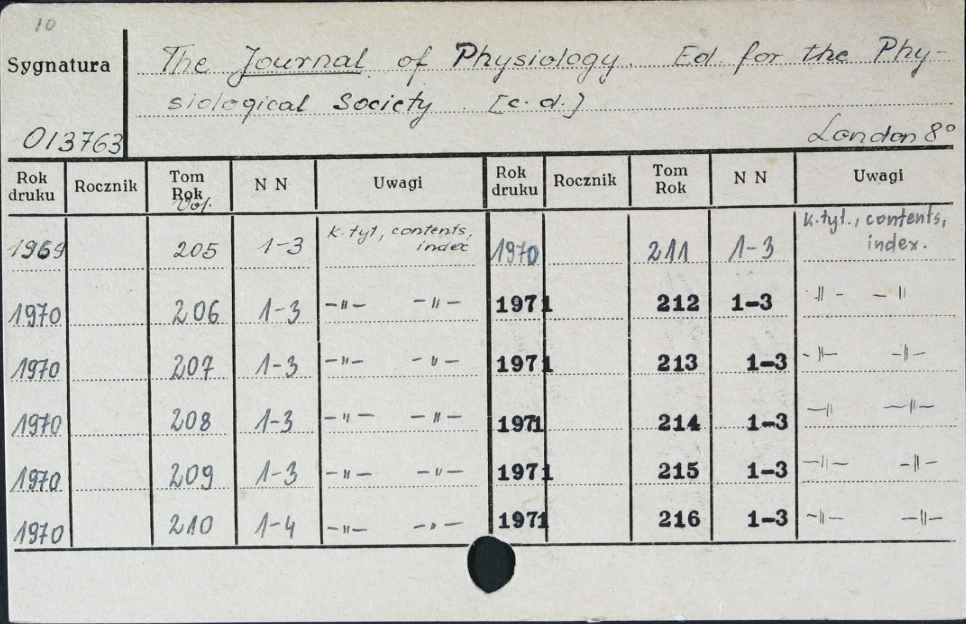 10
Sygnatura
The Journal of Physiology. Ed. for the Phy-
siological Society. [c. d.]
013763
London 8°
Rok druku Rocznik Tom Rok Vol. N N Uwagi Rok druku Rocznik Tom Rok N N Uwagi
1969 205 1-3 k. tyt., contents, index 1970 211 1-3 k. tyt., contents, index.
1970 206 1-3 -"- -"- 1971 212 1-3 -"- -"-
1970 207 1-3 -"- -"- 1971 213 1-3 -"- -"-
1970 208 1-3 -"- -"- 1971 214 1-3 -"- -"-
1970 209 1-3 -"- -"- 1971 215 1-3 -"- -"-
1970 210 1-4 -"- -"- 1971 216 1-3 -"- -"-